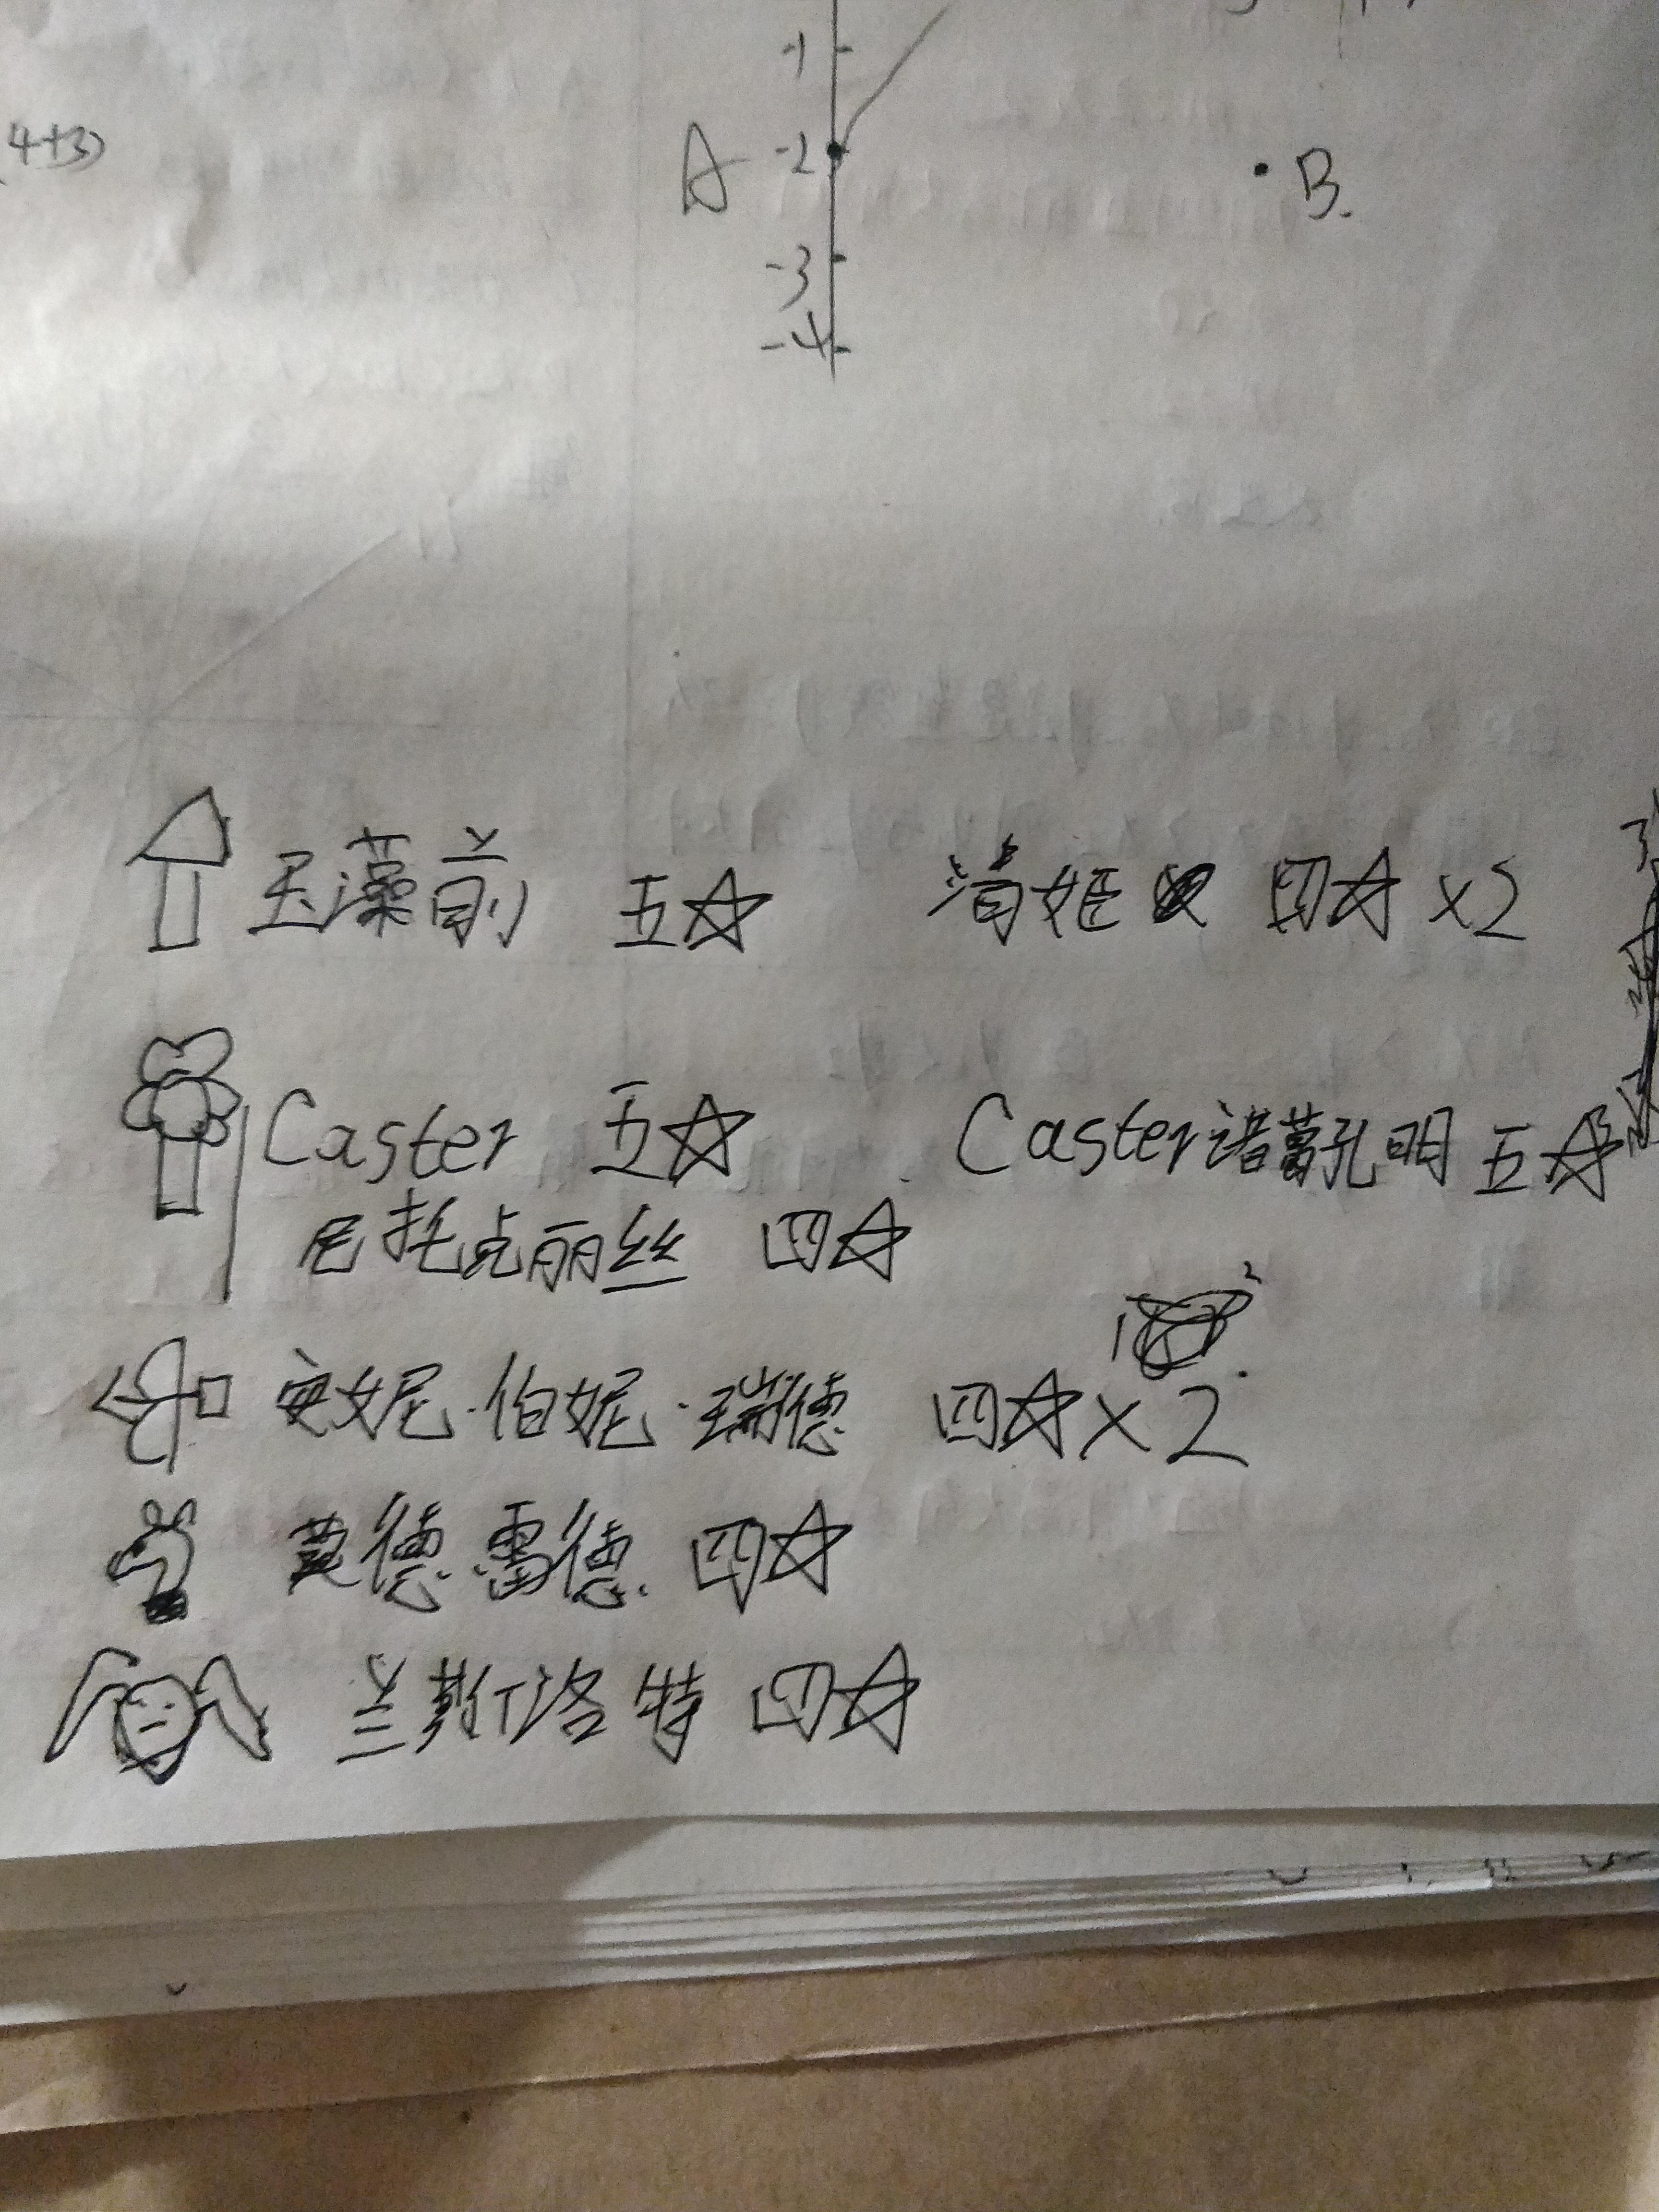 -1
(4+3)
A -2 B.
-3
-4
玉藻前 五☆ 清姬 四☆ ×2
Caster 五☆ Caster诸葛孔明 五☆
尼托克丽丝 四☆
安妮·伯妮·瑞德 四☆×2
莫德雷德. 四☆
兰斯洛特 四☆